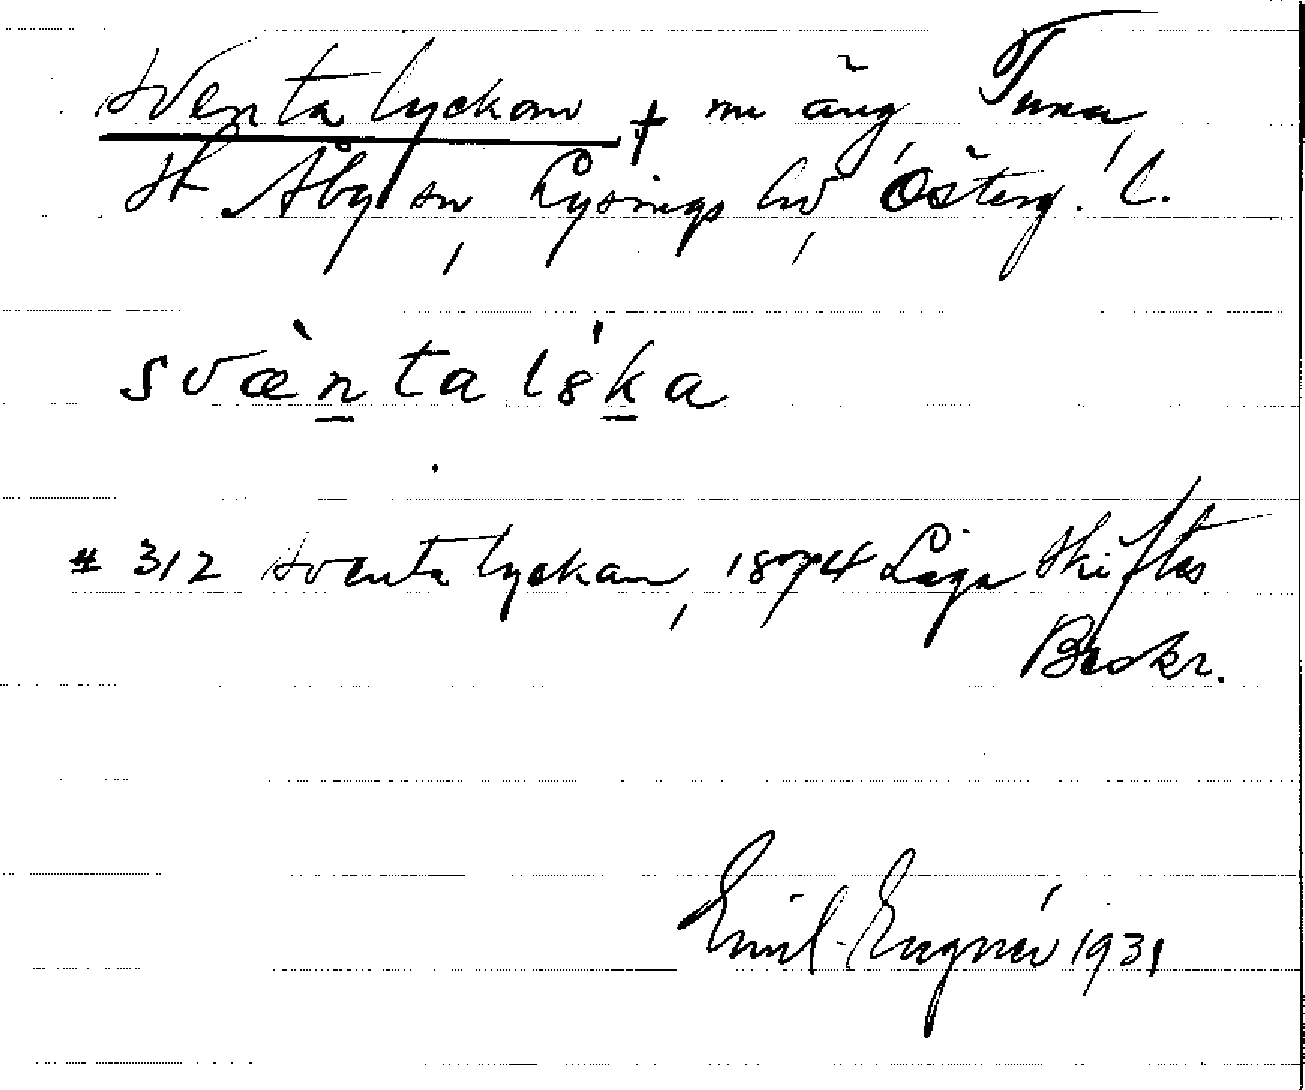 Sventa lyckan † nu äng Tuna,
St Åby sn, Lysings hd, Österg. l.
svæ̀n̲ta lýk̲a
# 312 Sventa lyckan, 1874 Laga Skiftes
Beskr.
Emil Engnér 1931